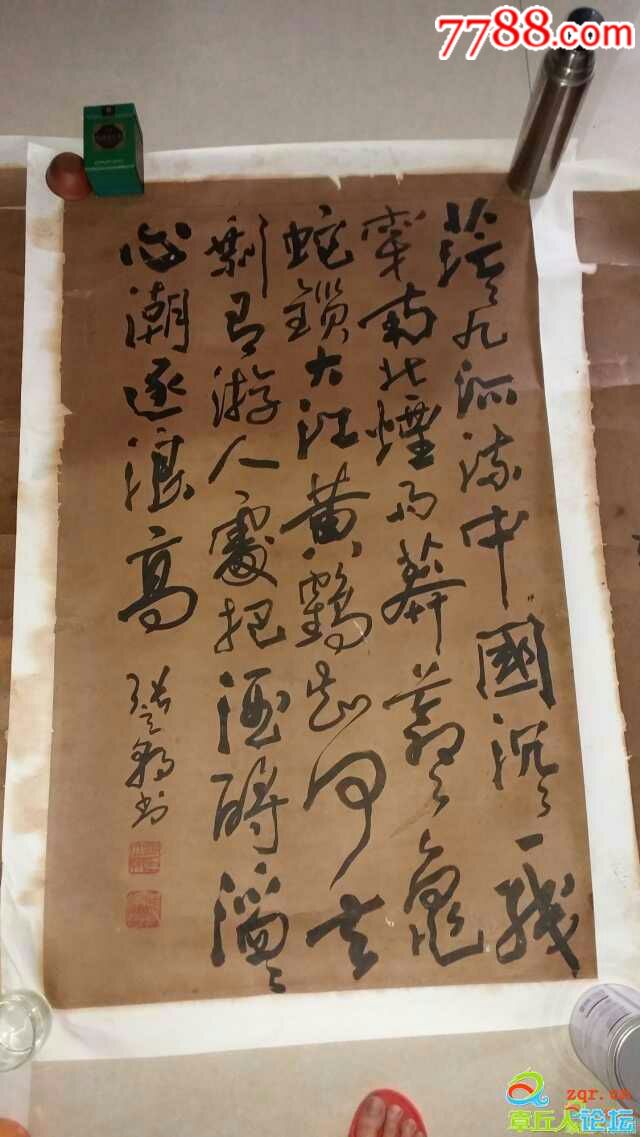 7788.com
茫〻九派流中國沉〻一綫
穿南北煙雨莽蒼〻龜
蛇鎖大江黄鶴知何去
剩有游人處把酒酹滔〻
心潮逐浪高
zqr.cn
章丘人论坛